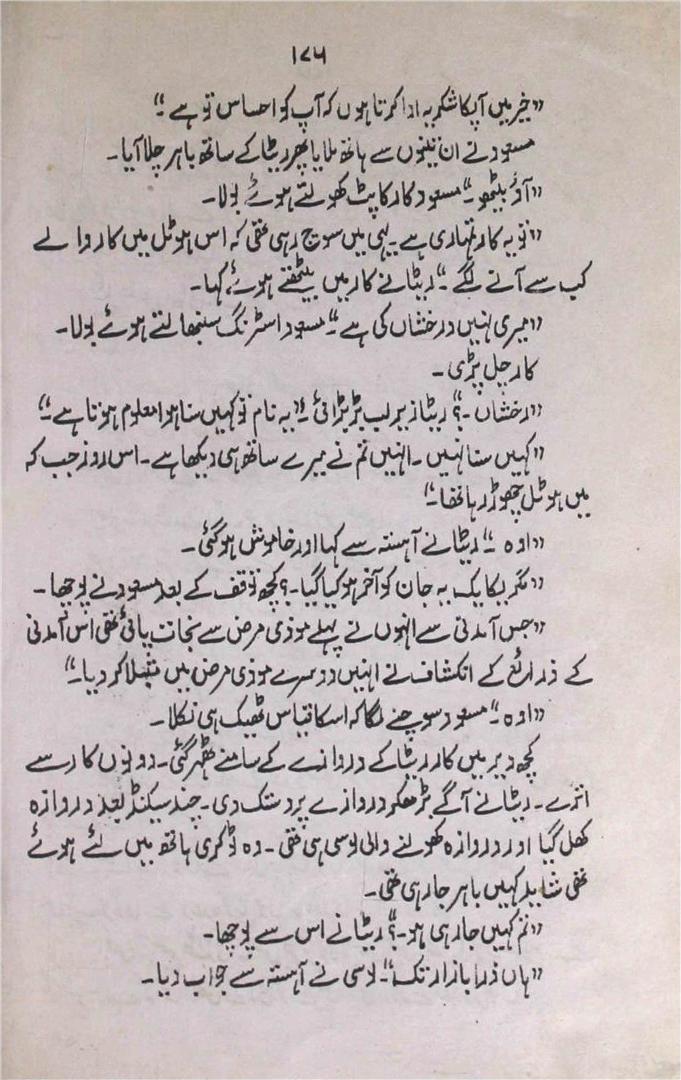 ۱۷۶
"خیر میں آپکا شکریہ ادا کرتا ہوں کہ آپ کو احساس تو ہے۔"
مسعود نے ان تینوں سے ہاتھ ملایا پھر ریٹا کے ساتھ باہر چلا آیا۔
"آؤ بیٹھو۔" مسعود کار کا پٹ کھولتے ہوئے بولا۔
"تو یہ کار تمہاری ہے۔ یہی میں سوچ رہی تھی کہ اس ہوٹل میں کار والے
کب سے آنے لگے۔" ریٹا نے کار میں بیٹھتے ہوئے کہا۔
"میری نہیں درخشاں کی ہے۔" مسعود اسٹرنگ سنبھالتے ہوئے بولا۔
کار چل پڑی۔
"رخشاں۔؟" ریٹا زیر لب بڑبڑائی۔ "یہ نام تو کہیں سنا ہوا معلوم ہوتا ہے۔"
"کہیں سنا نہیں۔ انہیں تم نے میرے ساتھ ہی دیکھا ہے۔ اس روز جب کہ
میں ہوٹل چھوڑ رہا تھا۔"
"اوہ۔" ریٹا نے آہستہ سے کہا اور خاموش ہو گئی۔
"مگر یکایک یہ جان کو آخر ہو کیا گیا۔؟ کچھ توقف کے بعد مسعود نے پوچھا۔
"جس آمدنی سے انہوں نے پہلے موذی مرض سے نجات پائی تھی اس آمدنی
کے ذرائع کے انکشاف نے انہیں دوسرے موذی مرض میں مبتلا کر دیا۔"
"اوہ۔" مسعود سوچنے لگا کہ اسکا قیاس ٹھیک ہی نکلا۔
کچھ دیر میں کار ریٹا کے دروازے کے سامنے ٹھہر گئی۔ دونوں کار سے
اترے۔ ریٹا نے آگے بڑھکر دروازے پر دستک دی۔ چند سیکنڈ بعد دروازہ
کھل گیا اور دروازہ کھولنے والی لوسی ہی تھی۔ وہ ٹوکری ہاتھ میں لئے ہوئے
تھی شاید کہیں باہر جا رہی تھی۔
"تم کہیں جا رہی ہو۔؟" ریٹا نے اس سے پوچھا۔
"ہاں ذرا بازار تک۔" لوسی نے آہستہ سے جواب دیا۔